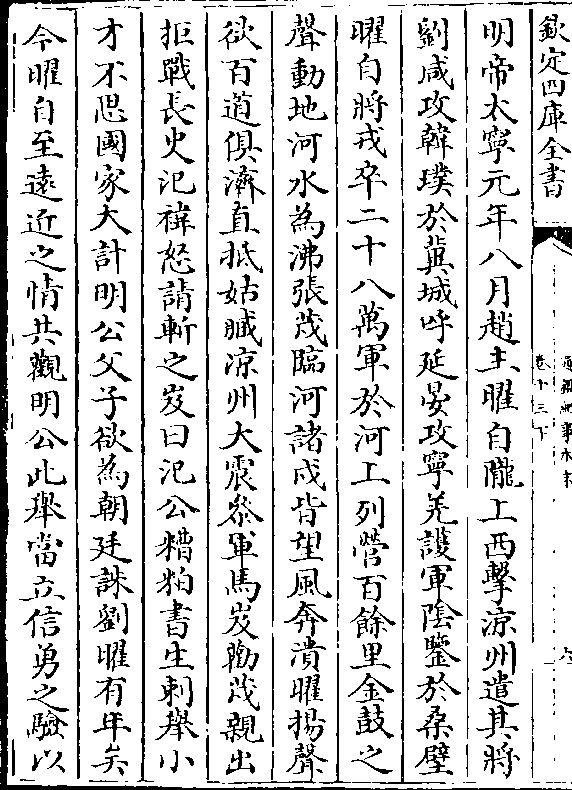 欽定四庫全書
卷十三下
明帝太寧元年八月趙主曜自隴上西擊涼州遣其將
劉咸攻韓璞於冀城呼延晏攻寧羌護軍陰鑒於桑壁
曜自將戎卒二十八萬軍於河上列營百餘里金鼓之
聲動地河水為沸張茂臨河諸戍皆望風奔潰曜揚聲
欲百道俱濟直抵姑臧涼州大震參軍馬岌勸茂親出
拒戰長史氾禕怒請斬之岌曰氾公糟粕書生刺舉小
才不思國家大計明公父子欲為朝廷誅劉曜有年矣
今曜自至遠近之情共觀明公此舉當立信勇之驗以